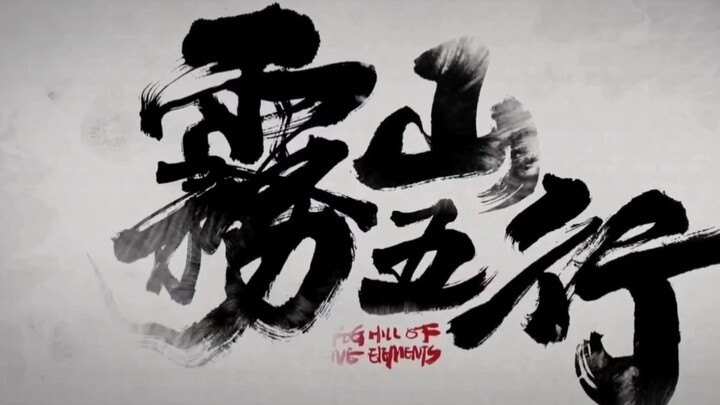 霧山
五行
FOG HILL OF
FIVE ELEMENTS